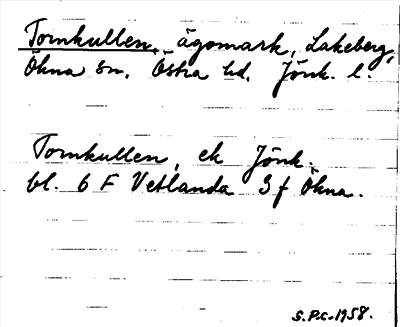 Tornkullen, ägomark, Lakeberg,
Ökna sn, Östra hd, Jönk. l.
Tornkullen, ek Jönk.
bl. 6 F Vetlanda 3 f Ökna.
S.P.C. 1958.